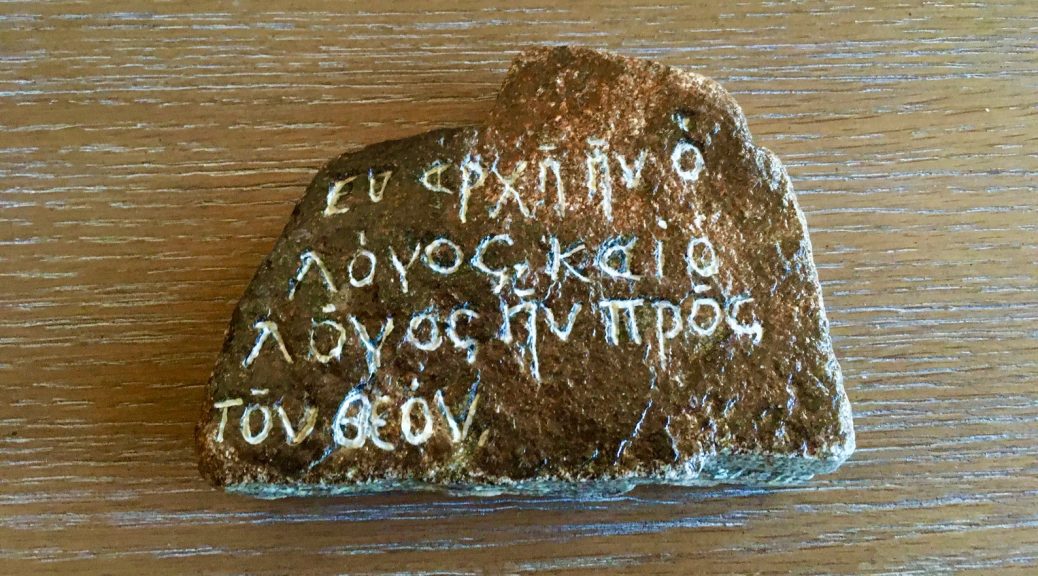 εν αρχῆ ἦν ὁ
λόγος, καὶ ὁ
λόγος ἦν πρὸς
τὸν θεόν,